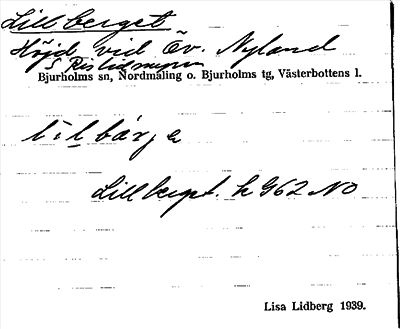 Lillberget
Höjd vid Öv. Nyland
S Ristidmyran
Bjurholms sn, Nordmaling o. Bjurholms tg, Västerbottens l.
Lillberget. h G62 NO
Lisa Lidberg 1939.